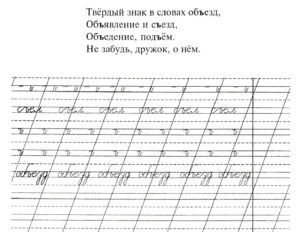 Твёрдый знак в словах объезд,
Объявление и съезд,
Объедение, подъём.
Не забудь, дружок, о нём.
ъ ъ ъ ъ ъ ъ ъ
съел съел съел съел съел съел
ъ ъ ъ ъ ъ ъ ъ
ъ ъ ъ ъ ъ ъ ъ
объезд объезд объезд объезд объезд объезд